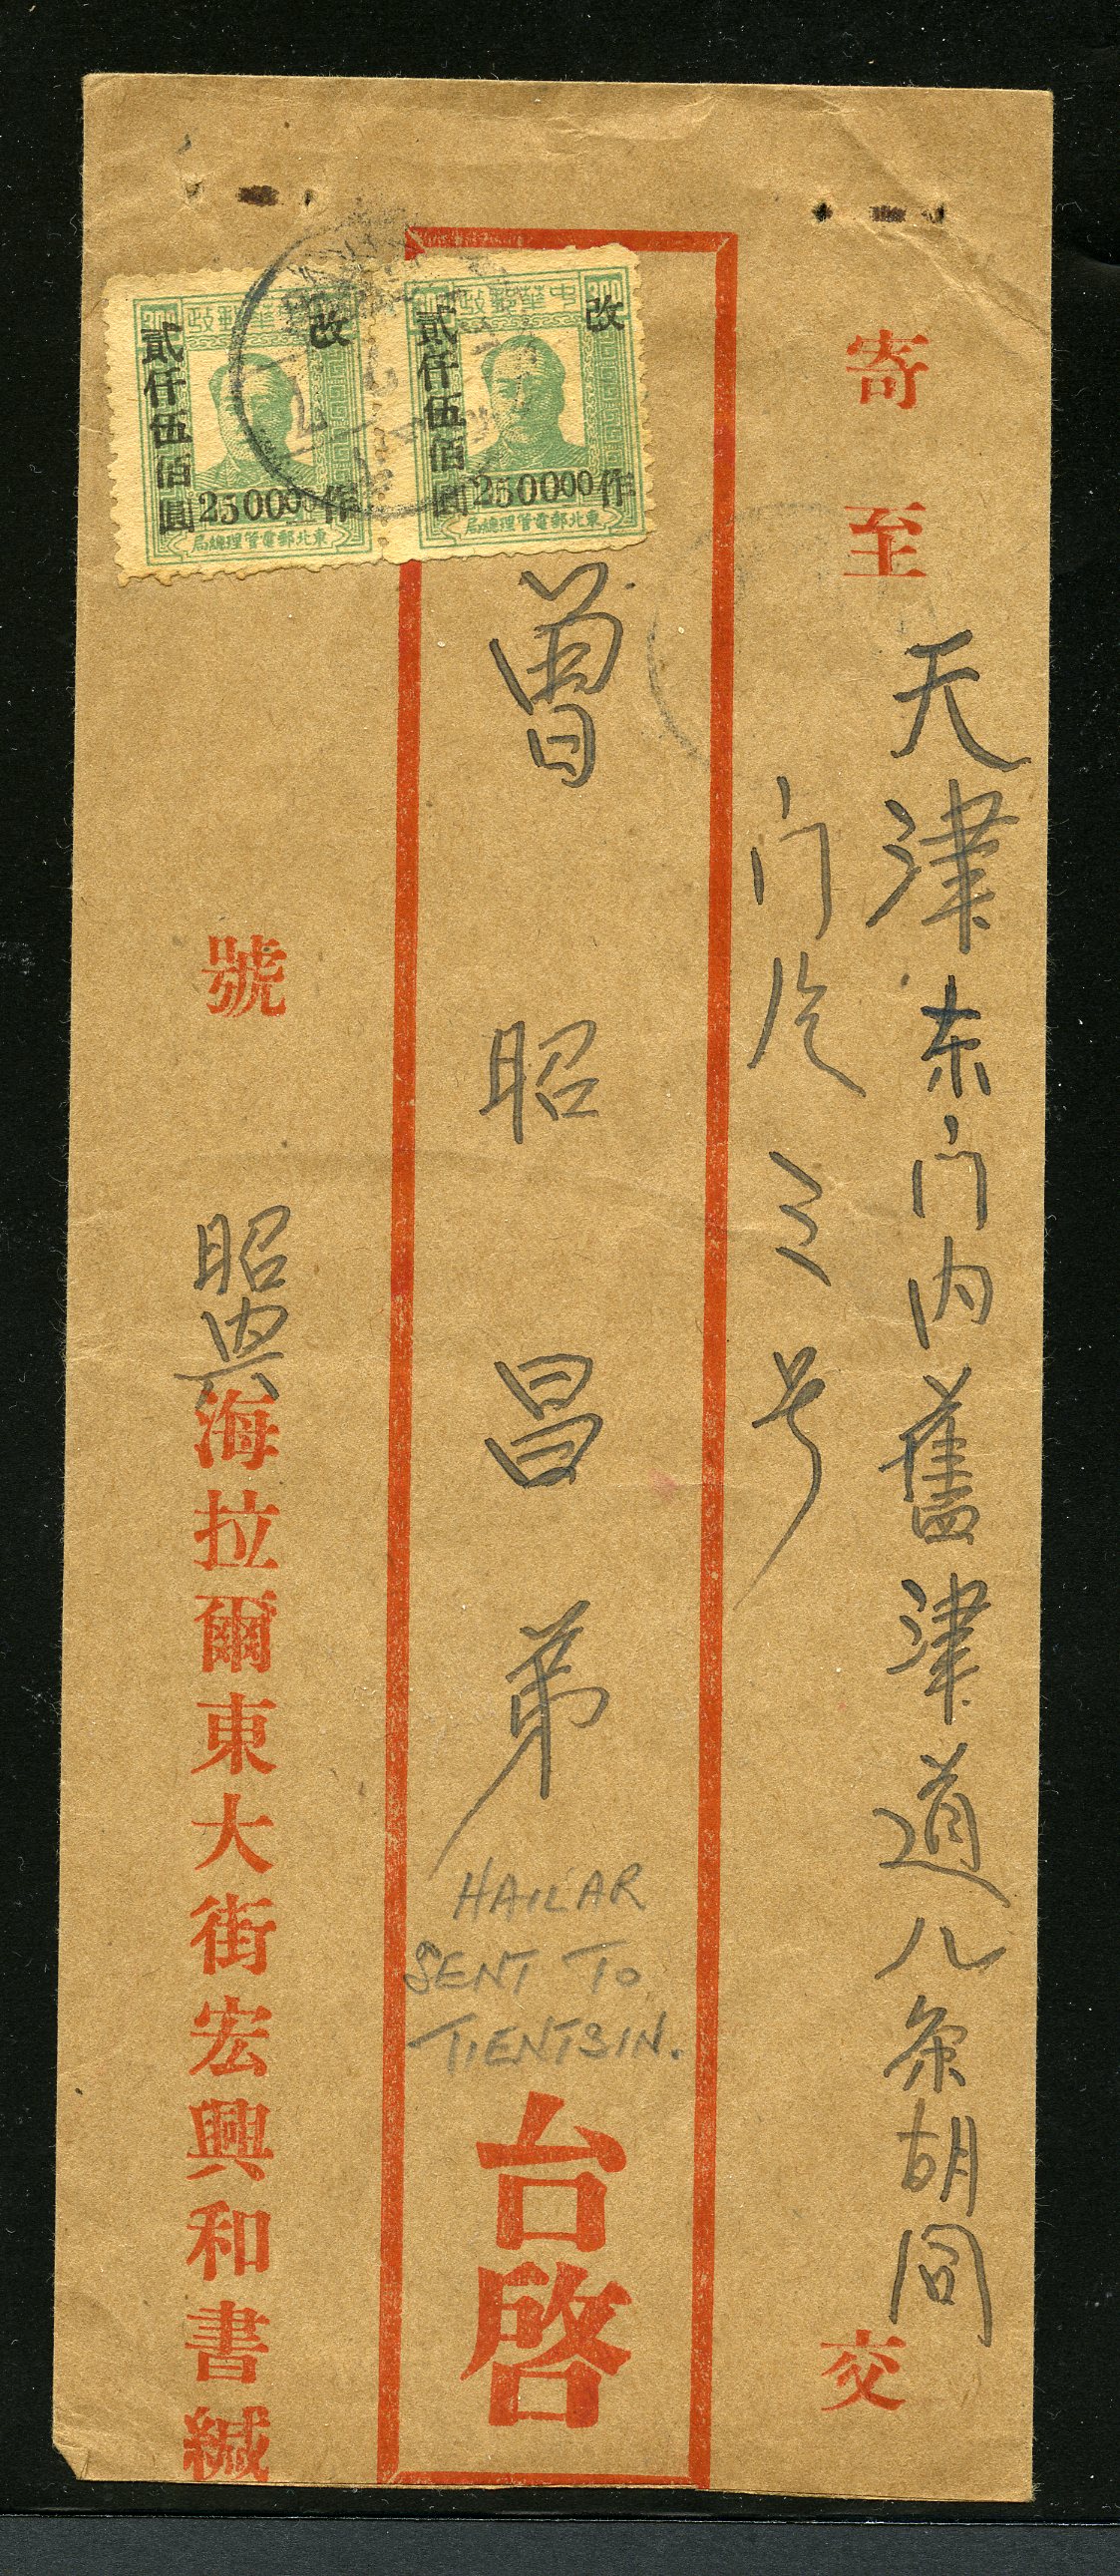 寄至
天津东门内舊津道八条胡同
门凭三号
交
曾昭昌弟
台啓
HAILAR
SENT TO
TIENTSIN.
中華郵政
改作
貳仟伍佰圓
250000
東北郵電管理總局
中華郵政
改作
貳仟伍佰圓
250000
東北郵電管理總局
號
昭
内
海拉爾東大街宏興和書緘